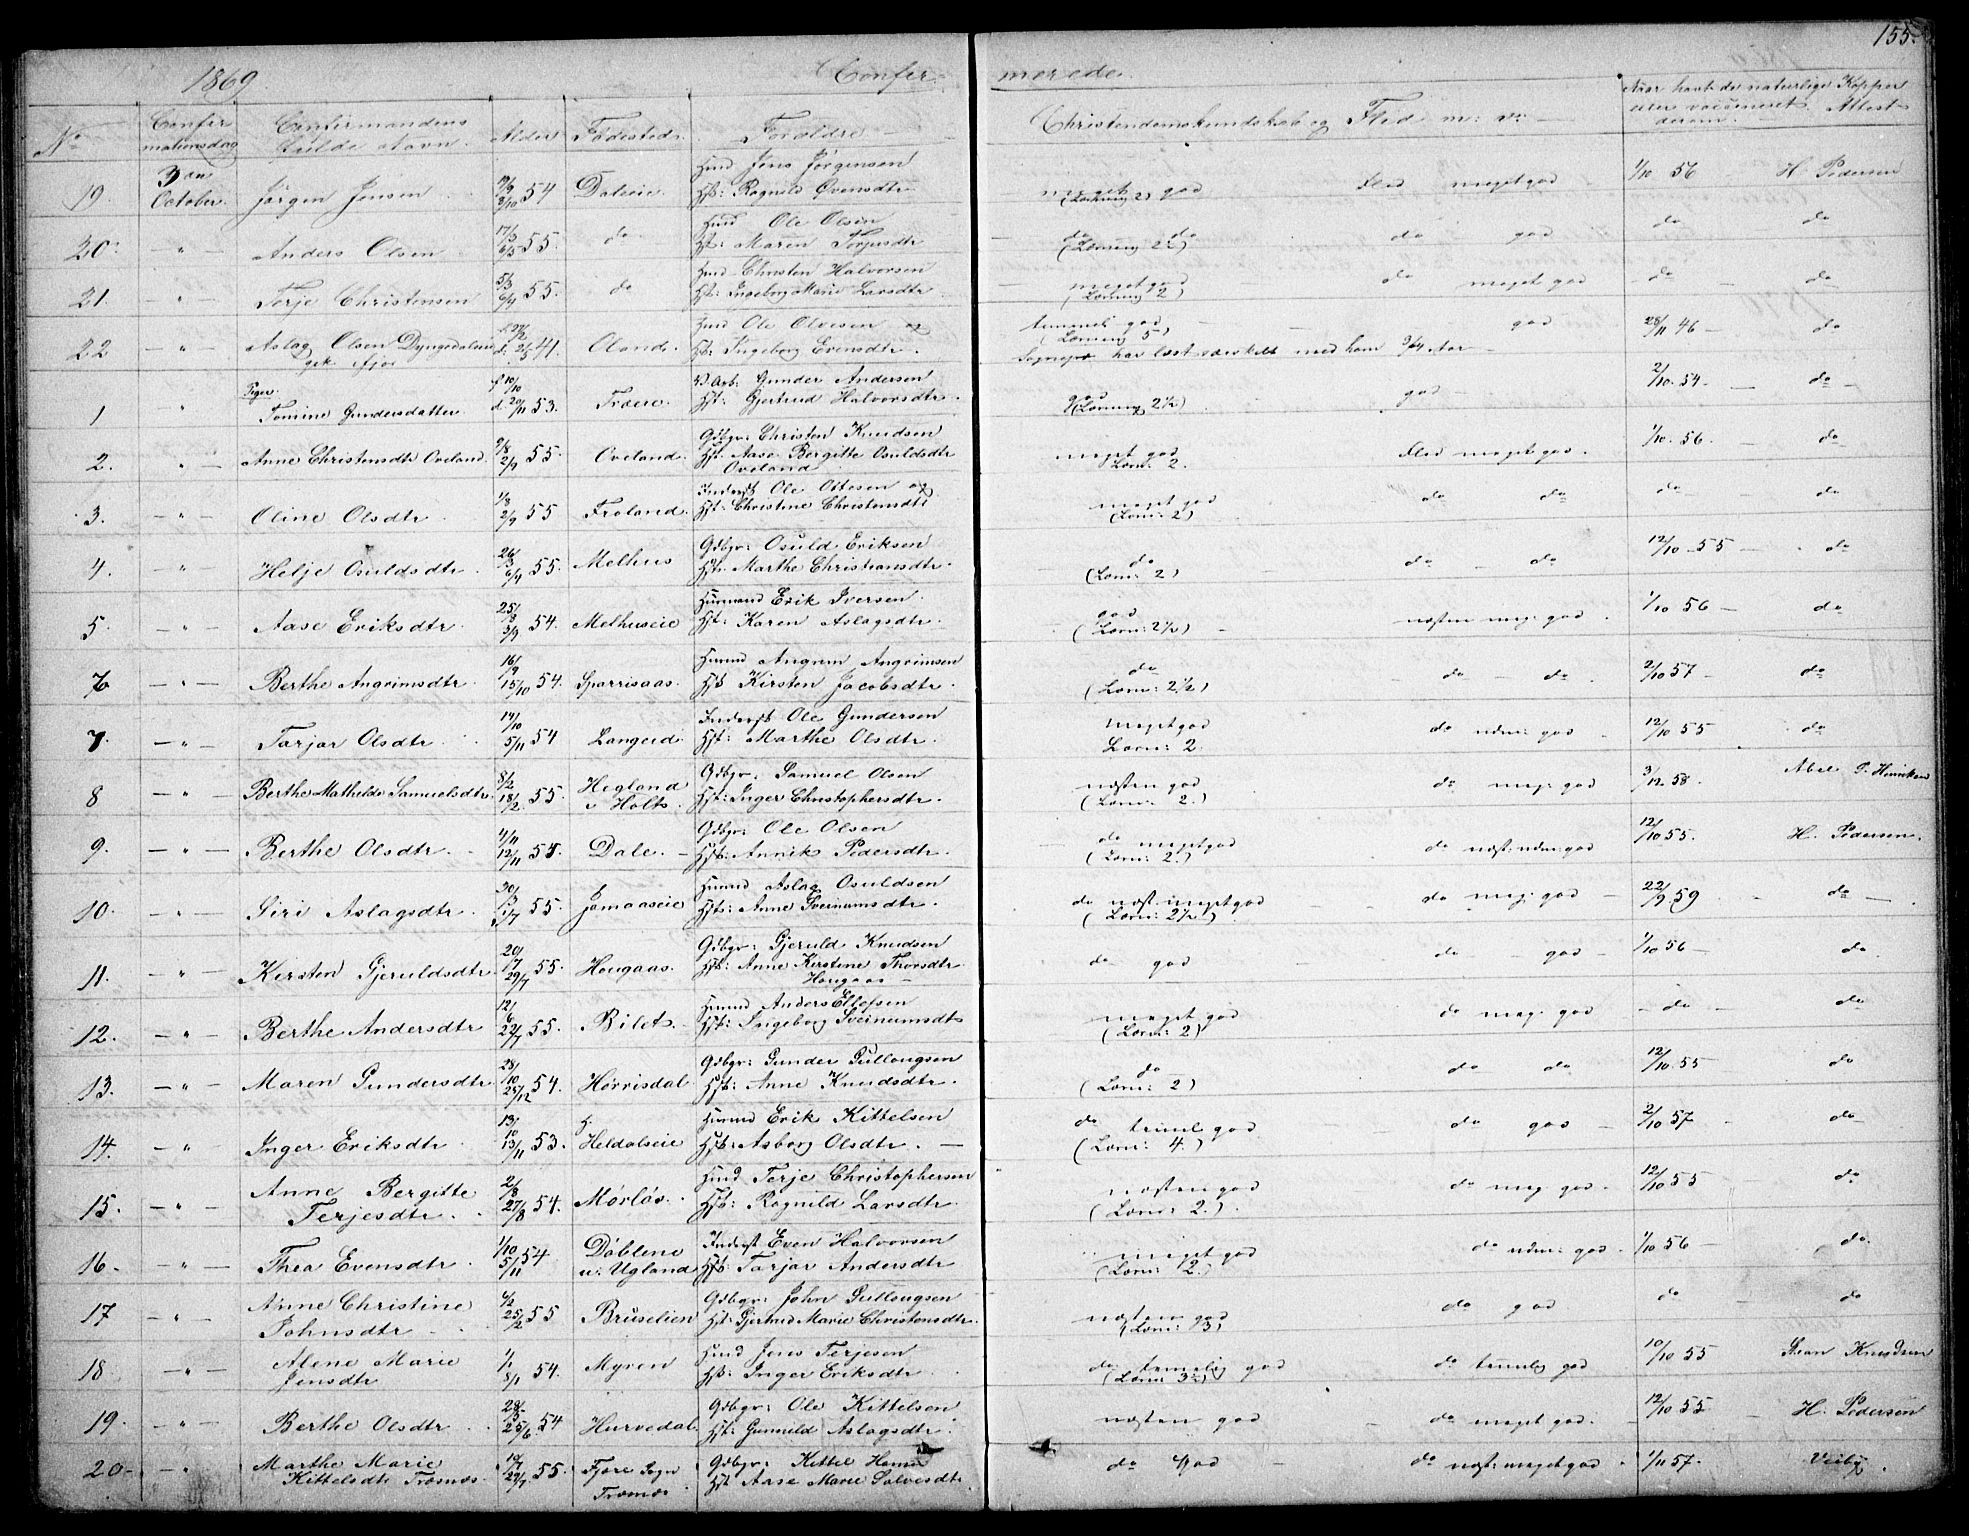 155.
1869 Confirmerede
No Confirmationsdag Confirmandens fulde Navn. Alder Fødested. Forældre Christendomskundskab og Flid m: v: Naar havt de naturlige Kopper eller vaccineret. Attest derom.
19. 3die October. Jørgen Jensen 54 Daleeie Hmd Jens Jørgensen Hst: Ragnild Evensdtr meget god (Læsning 2) Flid meget god 1/10 56 H. Pedersen
20. - " - Anders Olsen 17/3 6/5 55. do Hmd Ole Olsen Hst: Maren Torjusdtr do do (Læsning 2) do god do do
21 - " - Terje Christensen 5/3 6/4 55. do Hmd Christen Halvorsen Hst: Ingeborg Marie Larsdtr meget god (Læsning 2) do meget god do do
22 - " - Aslag Olsen Dyngedalseie 41. Oland. Hmd Ole Olvesen og Hst: Ingeborg Evensdtr. temmel: god (Læsning 5) god 28/11 46 - do
har læst særskilt med ham 3/4 Aar
Piger
1 " Tomine Gundersdatter f 10/10 d. 20/11 53. Frøere. Gunder Andersen Hst: Gjertrud Halvorsdtr. god (Læsning 2½) god 2/10. 54. - do
2. - " - Anne Christensdtr Oveland. 9/8 2/9 55. Oveland. Gdbgr: Christen Knudsen Hst: Aase Bergitte Osuldsdtr Oveland meget god Læsn: 2. Flid meget god. 1/10. 56. - do
3. - " - Oline Olsdtr. 1/8 2/9 55 Froland. Inderst Ole Ottesen og Hst: Christine Christensdtr meget god (Læsn: 2) do do do - do
4. - " - Helje Osuldsdtr. 26/3 6/4 55. Melhus Gdbgr: Osuld Eriksen Hst: Marthe Christiansdtr. do (Læsn: 2) do - do 12/10 55 - do
5. - " - Aase Eriksdtr. 25/8 3/9 54. Melhuseie Husmand Erik Iversen. Hst: Karen Aslagsdtr. god (Læsn: 2½) næsten meg: god. 1/10 56 - do
6 - " - Berthe Angrimsdtr. 16/9 15/10 54. Sparrisaas. Husmd Angrim Angrimsen Hst Kirsten Jacobsdtr. do (Læsn: 2½) do - do. 2/10 57 - do
7. - " - Tarjar Olsdtr. 14/10 5/11 54 Langeid. Inderst Ole Gundersen Hst: Marthe Olsdtr. meget god Læsn: 2. do udm: god 12/10 55 do
8 - " - Berthe Mathilde Samuelsdtr. 8/2 18/2 55. Hegland i Holts. Gdbgr: Samuel Olsen Hst: Inger Christophersdtr. næsten god (Læsn: 2.) do meg: god 3/12. 58. Abel P. Henriksen
9. - " - Berthe Olsdtr. 4/11 12/11 Dale. Gdbgr: Ole Olsen Hst: Annik Pedersdtr. do meget god (Læsn: 2.) do næst: udm: god 12/10 55. H. Pedersen.
10. - " - Siri Aslagsdtr. 55. Jomaaseie Husmd Aslag Osuldsen Hst: Anne Sveinumsdtr. do næst: meget god (Læsn: 2½) do meg: god 22/9. 59 - do
11. - " - Kirsten Gjeruldsdtr. 20/7 29/7 55. Hougaas. Gdbgr: Gjeruld Knudsen Hst: Anne Kirstine Thorsdtr. Hougaas do god do - god 1/10 56 - do
12. - " - Berthe Andersdtr 12/6 22/7 55. Bilet. Husmd Anders Ellefsen Hst: Ingeborg Sveinumsdtr meget god (Læsn: 2) do meg: god - do - do
13. - " - Maren Gundersdtr. 28/10 25/12 54. Hørrisdal Gdbgr: Gunder Gullougsen Hst: Anne Knudsdtr. do (Læsn: 2) do do 12/10 55 do
14. - " Inger Eriksdtr. 13/10 13/11 53. Heldalseie Husmd Erik Kittelsen Hst: Asborg Olsdtr. - do temel god (Læsn: 4.) do god 2/10 57 do
15. - " - Anne Bergitte Terjesdtr. 2/8 27/8 54. Mørløs. Hmd Terje Christophersen Hst: Ragnild Larsdtr næsten god (Læsn: 2.) do meg god. 12/10 55 do
16. - " - Thea Evensdtr. 1/10 5/11 54 Døblene u: Ugland Inderst Even Halvorsen Hst: Tarjar Andersdtr meget god (Læsn: 2.) do udm: god. 1/10 56 - do
17 - " - Anne Christine Johnsdtr. 6/2 25/2 55 Bruselien Gdbgr: John Gullougsen Hst: Gjertrud Marie Christensdtr. næsten god (Læsn: 3) do god do - do
18 - " - Alene Marie Jensdtr 1/1 8/1 54. Myren Hmd Jens Terjesen Hst: Inger Eriksdtr do temelig god (Læsn: 3½) do temlig god 10/10 55 Knudsen
19. - " - Berthe Olsdtr. 54 Hurvedal. Gdbgr: Ole Kittelsen Hst: Gunnild Aslagsdtr. næsten god - do meget god. 12/10 55 - H. Pedersen
20 - - " Marthe Marie Kittelsdtr Tromøs 55. Fjære Sogn Tromøs Gdbgr: Kittel Hst Aase Marie Salvesdtr do god do næst: meget god 1/11 57. Veiby.